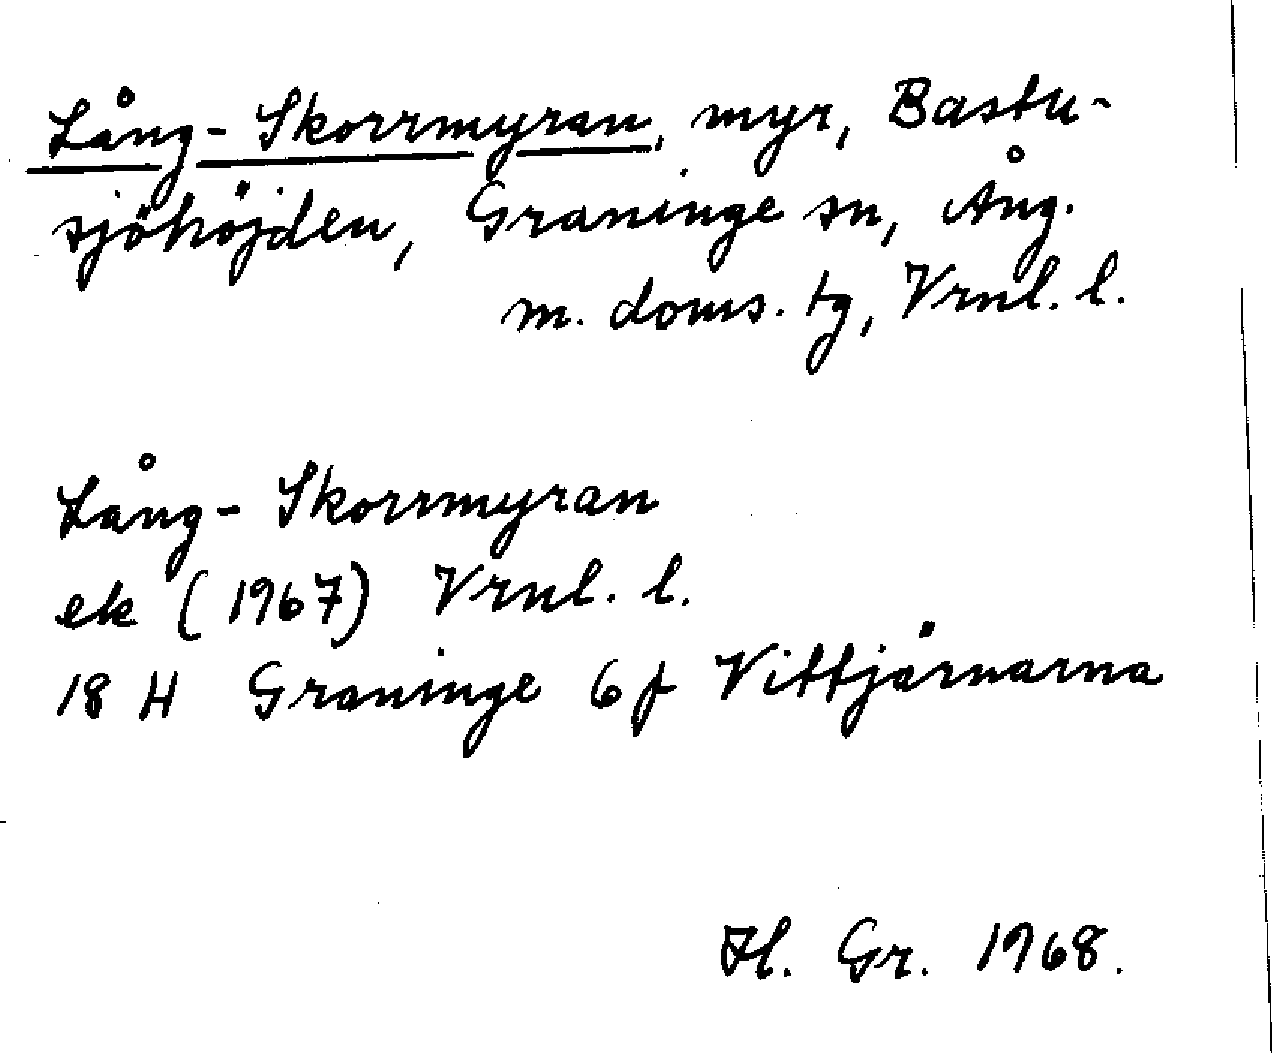 Lång-Skorrmyran, myr, Bastu-
sjöhöjden, Graninge sn, Ång.
m. doms. tg, Vrnl. l.
Lång-Skorrmyran
ek (1967) Vrnl. l.
18 H Graninge 6f Vittjärnarna
Hl. Gr. 1968.